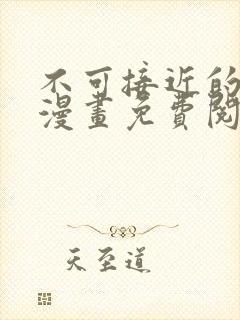 不可接近的
漫畫免費閱
天至道